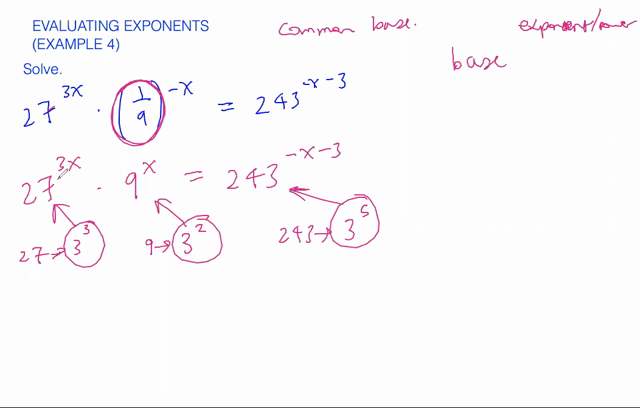 EVALUATING EXPONENTS
(EXAMPLE 4)
common base.
exponent/power
base
Solve.
27^3x · (1/9)^-x = 243^-x-3
27^3x · 9^x = 243^-x-3
27→ 3^3 9→ 3^2 243→ 3^5